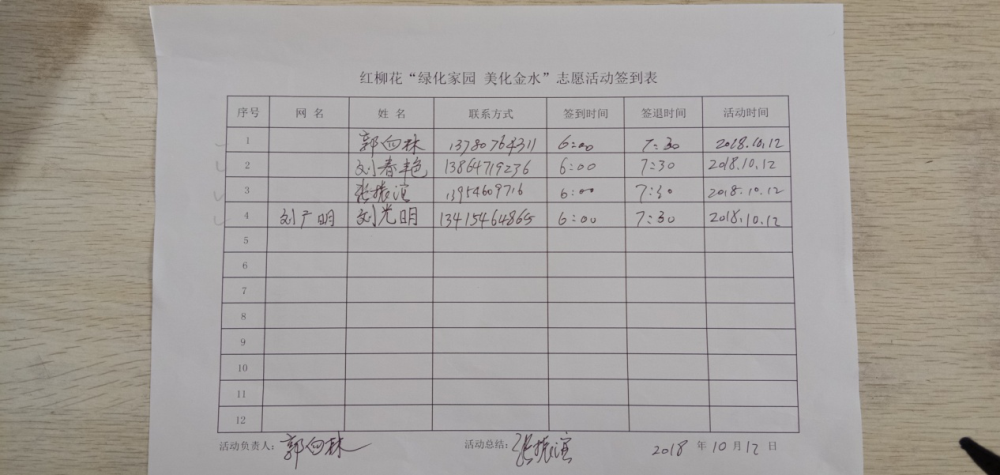 红柳花“绿化家园 美化金水”志愿活动签到表
序号 网 名 姓 名 联系方式 签到时间 签退时间 活动时间
1 郭向林 13780764311 6:00 7:30 2018.10.12
2 刘春艳 13864719236 6:00 7:30 2018.10.12
3 张振谊 13954609716 6:00 7:30 2018.10.12
4 刘广明 刘光明 13415464865 6:00 7:30 2018.10.12
5
6
7
8
9
10
11
12
活动负责人: 郭向林 活动总结: 张振谊 2018 年 10 月 12 日